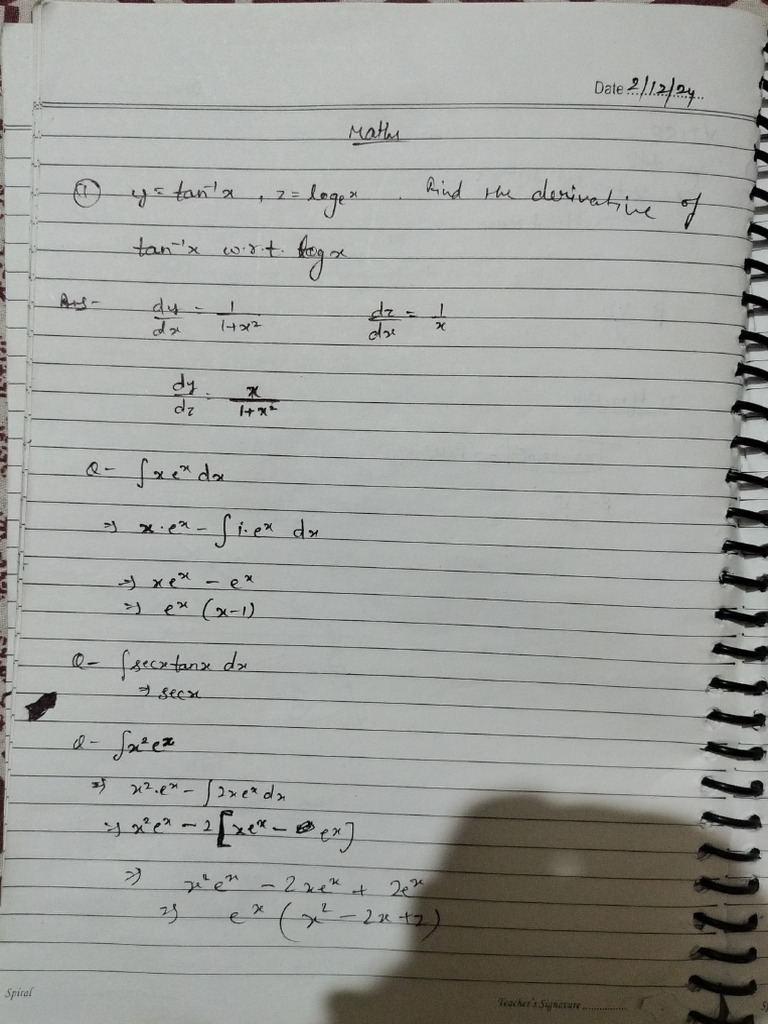 Date 2/12/24
Maths
① y = tan⁻¹x , z = logₑx . Find the derivative of
tan⁻¹x w.r.t. logx
Ans - dy/dx = 1/(1+x²) dz/dx = 1/x
dy/dz = x/(1+x²)
Q- ∫xeˣ dx
⇒ x·eˣ - ∫1·eˣ dx
⇒ xeˣ - eˣ
⇒ eˣ (x-1)
Q- ∫secxtanx dx
⇒ secx
Q- ∫x²eˣ
⇒ x²·eˣ - ∫2xeˣdx
⇒ x²eˣ - 2[xeˣ - eˣ]
⇒ x²eˣ - 2xeˣ + 2eˣ
⇒ eˣ (x² - 2x + 2)
Spiral Teacher's Signature ..............